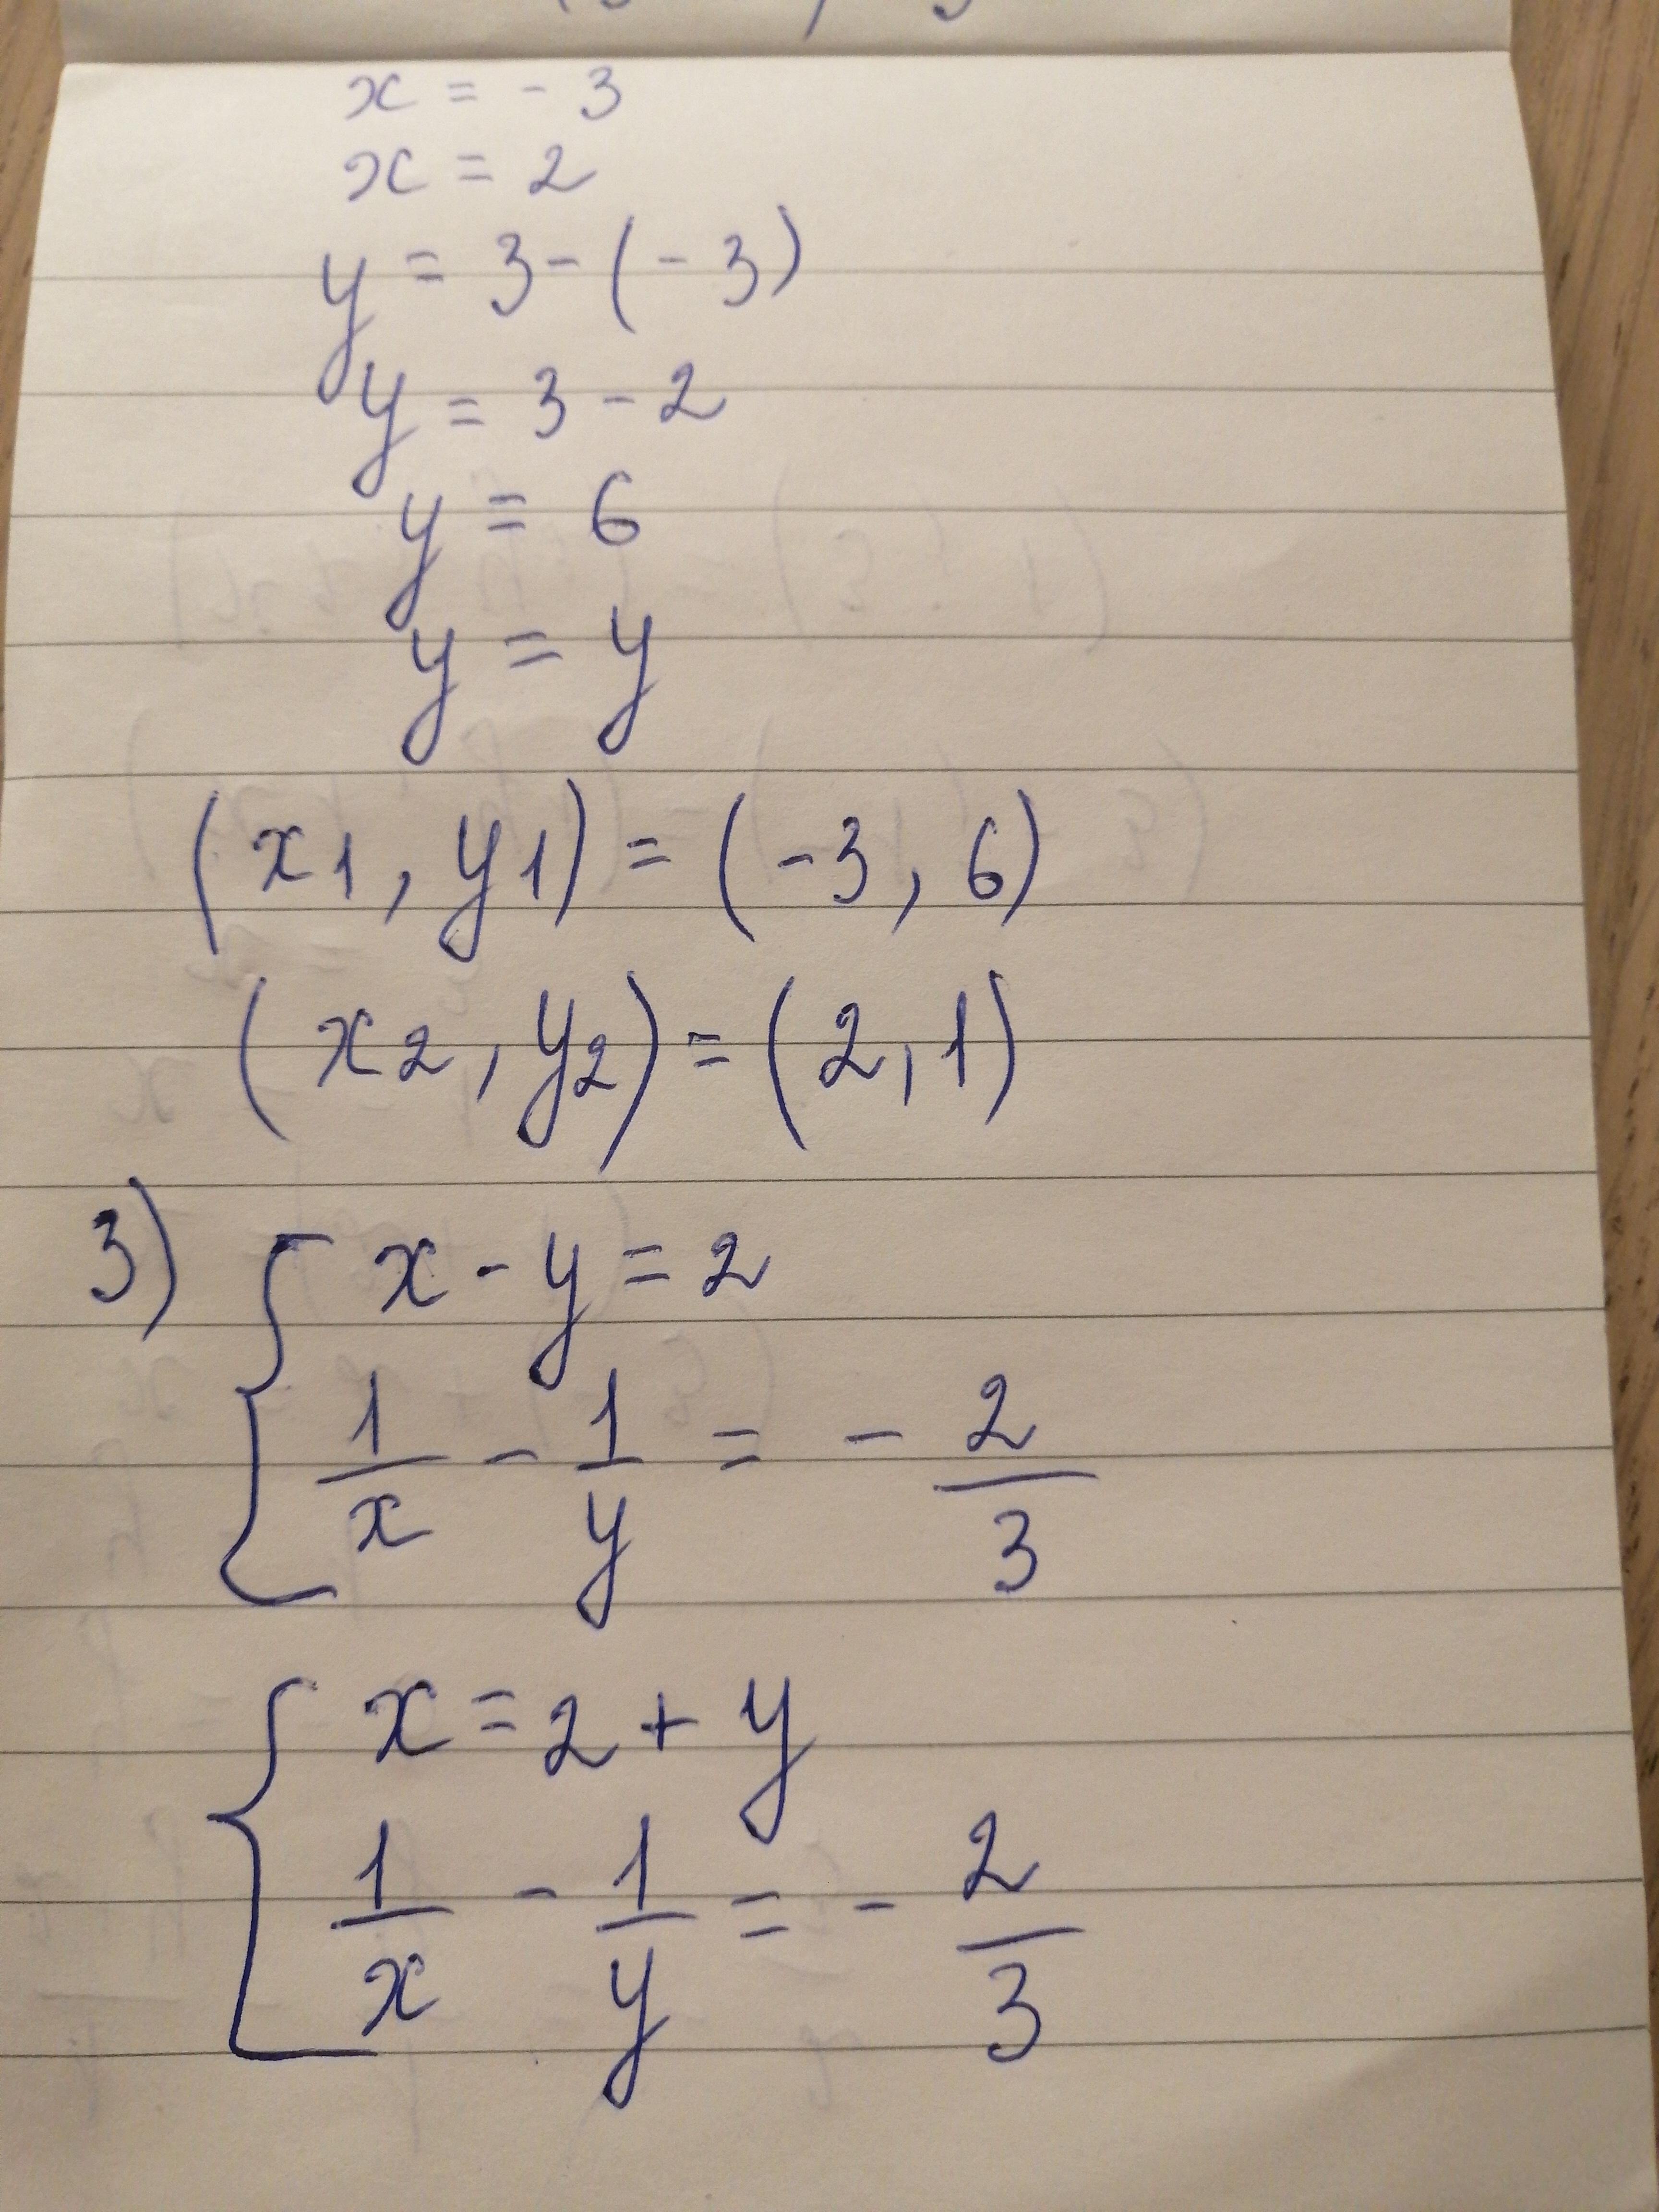 x = - 3
x = 2
y = 3 - (- 3)
y = 3 - 2
y = 6
y = y
(x1, y1) = (-3, 6)
(x2, y2) = (2, 1)
3) { x - y = 2
1/x - 1/y = - 2/3
{ x = 2 + y
1/x - 1/y = - 2/3